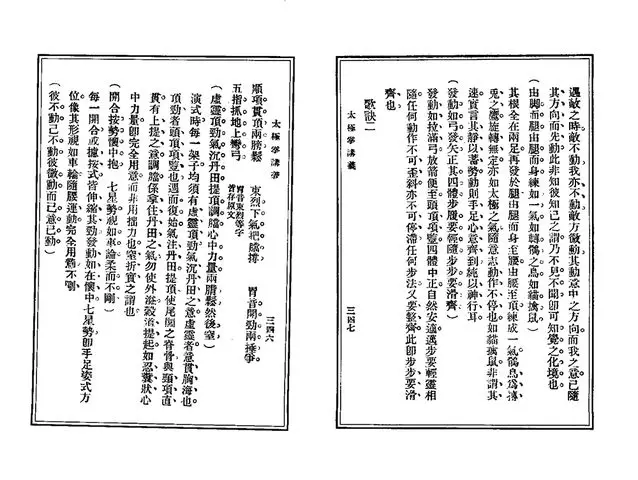 太極拳講義
三四六
順項貫頂兩膀鬆 束烈下氣把襠撐 胃音開勁兩捶爭
五指抓地上彎弓
胃音束烈等字
皆存原文
(虛靈頂勁氣沉丹田提頂調襠心中力量兩膀鬆然後窒)
演式時每一架子均須有虛靈頂勁氣沉丹田之意虛靈者意貫胸海也
頂勁者頭頂項豎也週而復始氣注丹田提頂使尾閭之脊骨與頸項直
貫有上提之意調襠係拿住丹田之氣勿使外溢穀道提起如忍糞狀心
中力量即完全用意而非用拙力也窒折實之謂也
(開合按勢懷中抱 七星勢視如車輪柔而不剛)
每一開合或擄按式皆伸縮其勁發動如在懷中七星勢即手足姿式方
位像其形視如車輪隨腰運動完全用意不剛
(彼不動己不動彼微動而己意已動)
太極拳講義
三四七
遇敵之時敵不動我亦不動敵方微動其動意中之方向而我之意已隨
其方向而先動此非知彼知己之謂乃不見不聞即可知覺之化境也
(由脚而腿由腿而身練如一氣如轉鶻之鳥如貓擒鼠)
其根全在兩足再發於腿由腿而身至腰由腰至頂練成一氣鶻鳥為搏
兔之鷹旋轉無定亦如太極之氣隨意志動作不停也如貓擒鼠非謂其
速實言其靜以蓄勞動則手足心意齊到純以神行耳
(發動如弓發矢正其四體步履要輕隨步步要滑齊)
發動如拉滿弓放箭便至頭項頂豎四體中正自然安適邁步要輕靈相
隨任何動作不可歪斜亦不可停滯任何步法又要整齊此即步步要滑
齊也
歌訣二